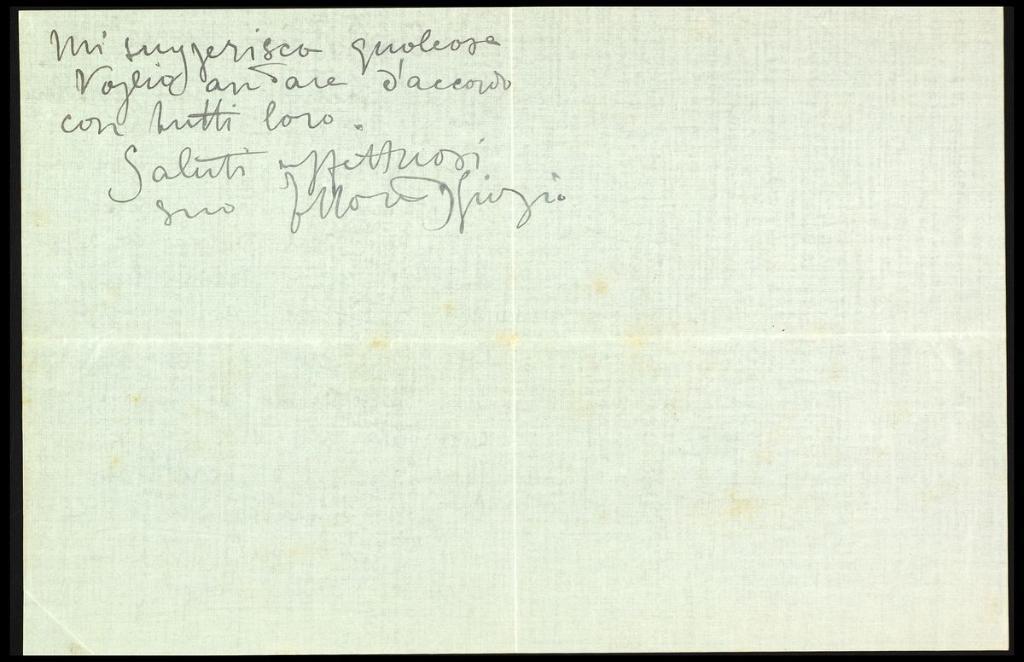 Mi suggerisca qualcosa
Voglio andare d'accordo
con tutti loro.
Saluti affettuosi
suo